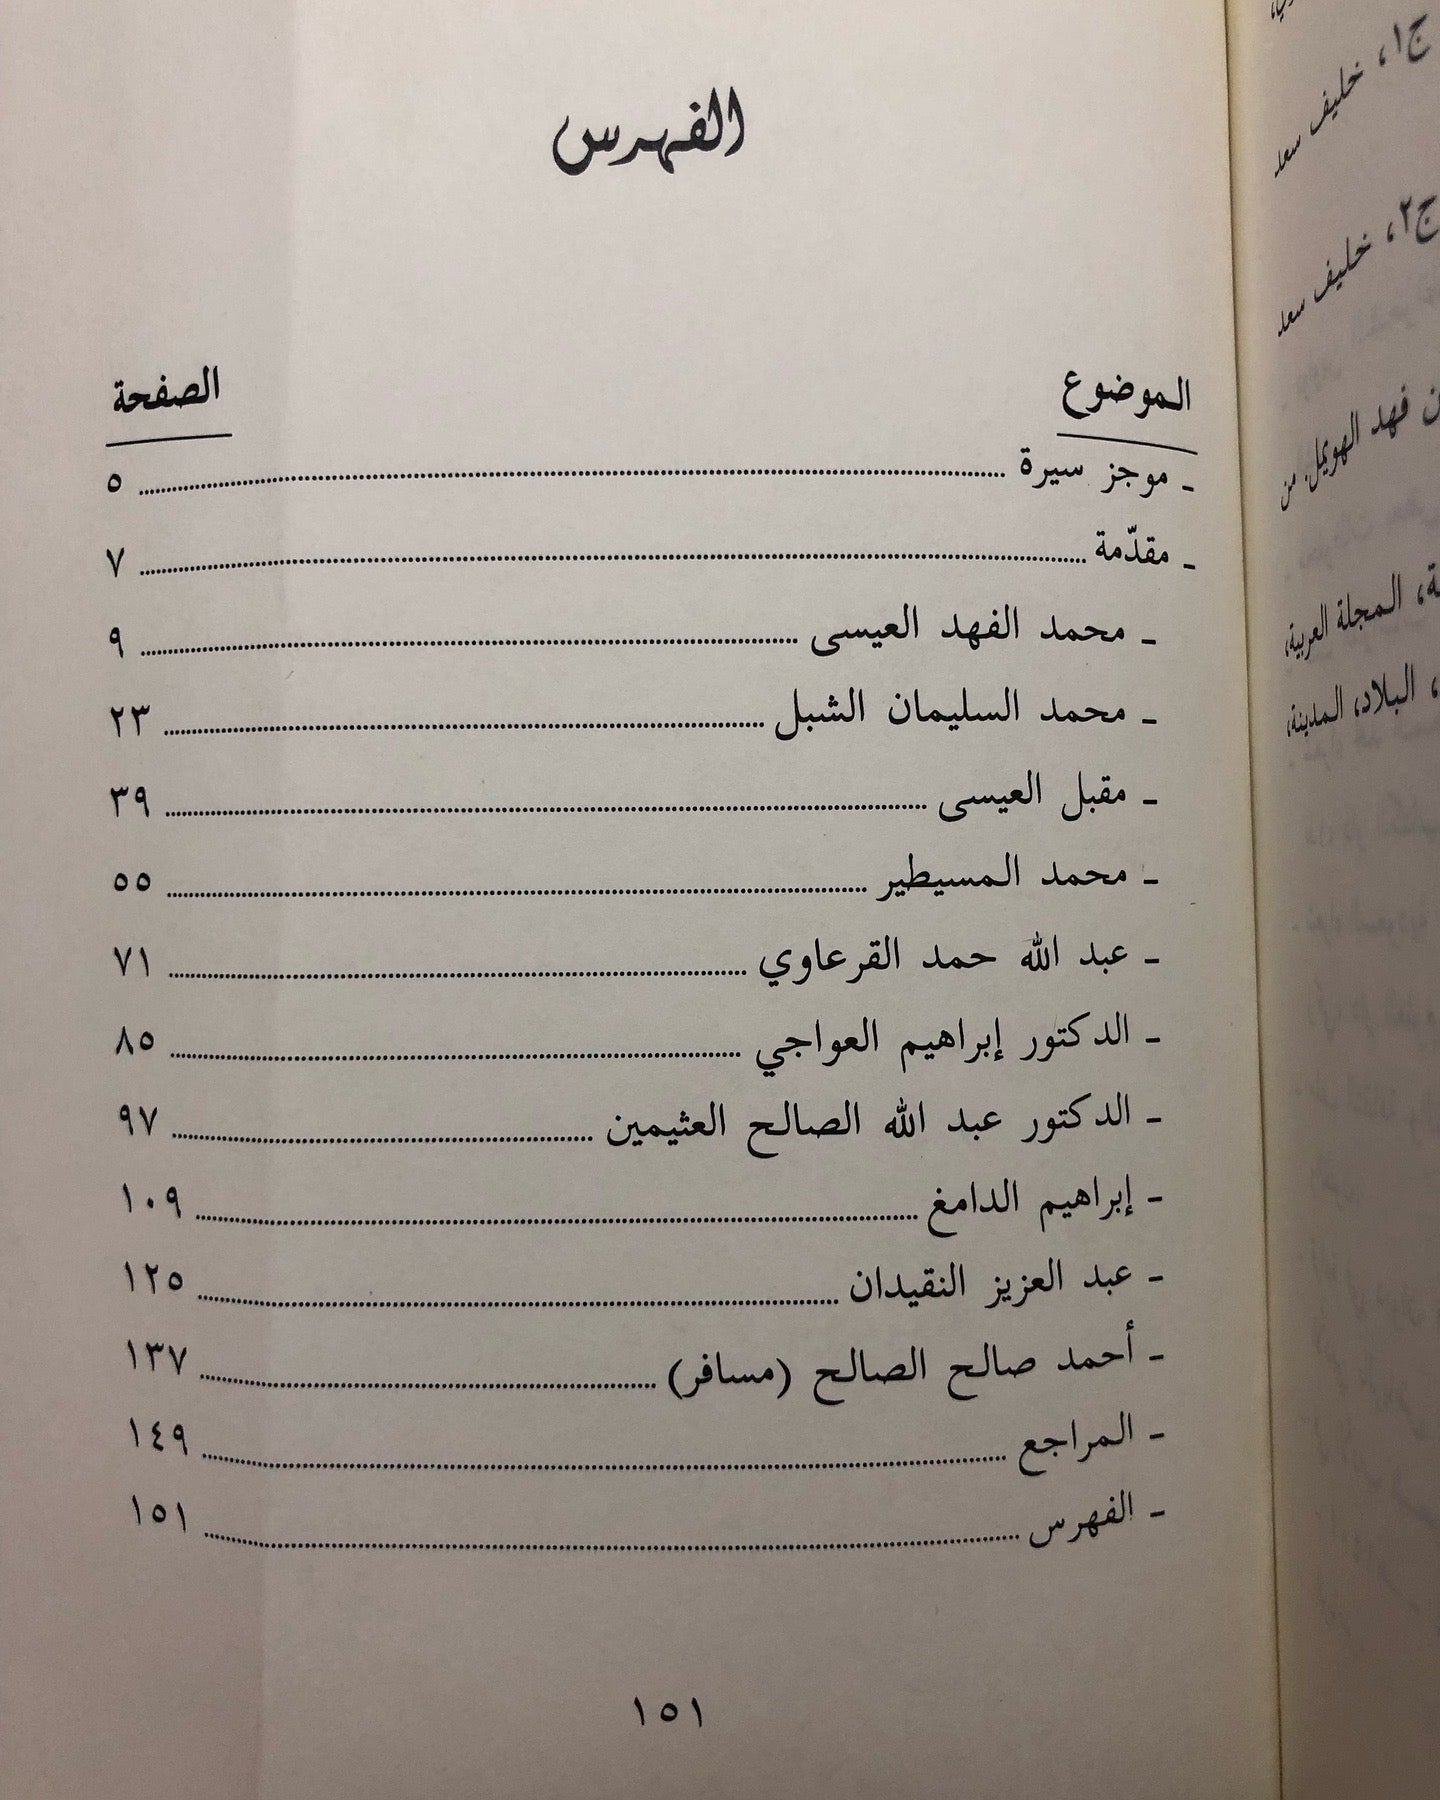 الفهرس
الموضوع الصفحة
- موجز سيرة ........ ٥
- مقدّمة ........ ٧
- محمد الفهد العيسى ........ ٩
- محمد السليمان الشبل ........ ٢٣
- مقبل العيسى ........ ٣٩
- محمد المسيطير ........ ٥٥
- عبد الله حمد القرعاوي ........ ٧١
- الدكتور إبراهيم العواجي ........ ٨٥
- الدكتور عبد الله الصالح العثيمين ........ ٩٧
- إبراهيم الدامغ ........ ١٠٩
- عبد العزيز النقيدان ........ ١٢٥
- أحمد صالح الصالح (مسافر) ........ ١٣٧
- المراجع ........ ١٤٩
- الفهرس ........ ١٥١
١٥١
ج١، خليف سعد
ج٢، خليف سعد
فهد الهويمل. من
المجلة العربية،
البلاد، المدينة،